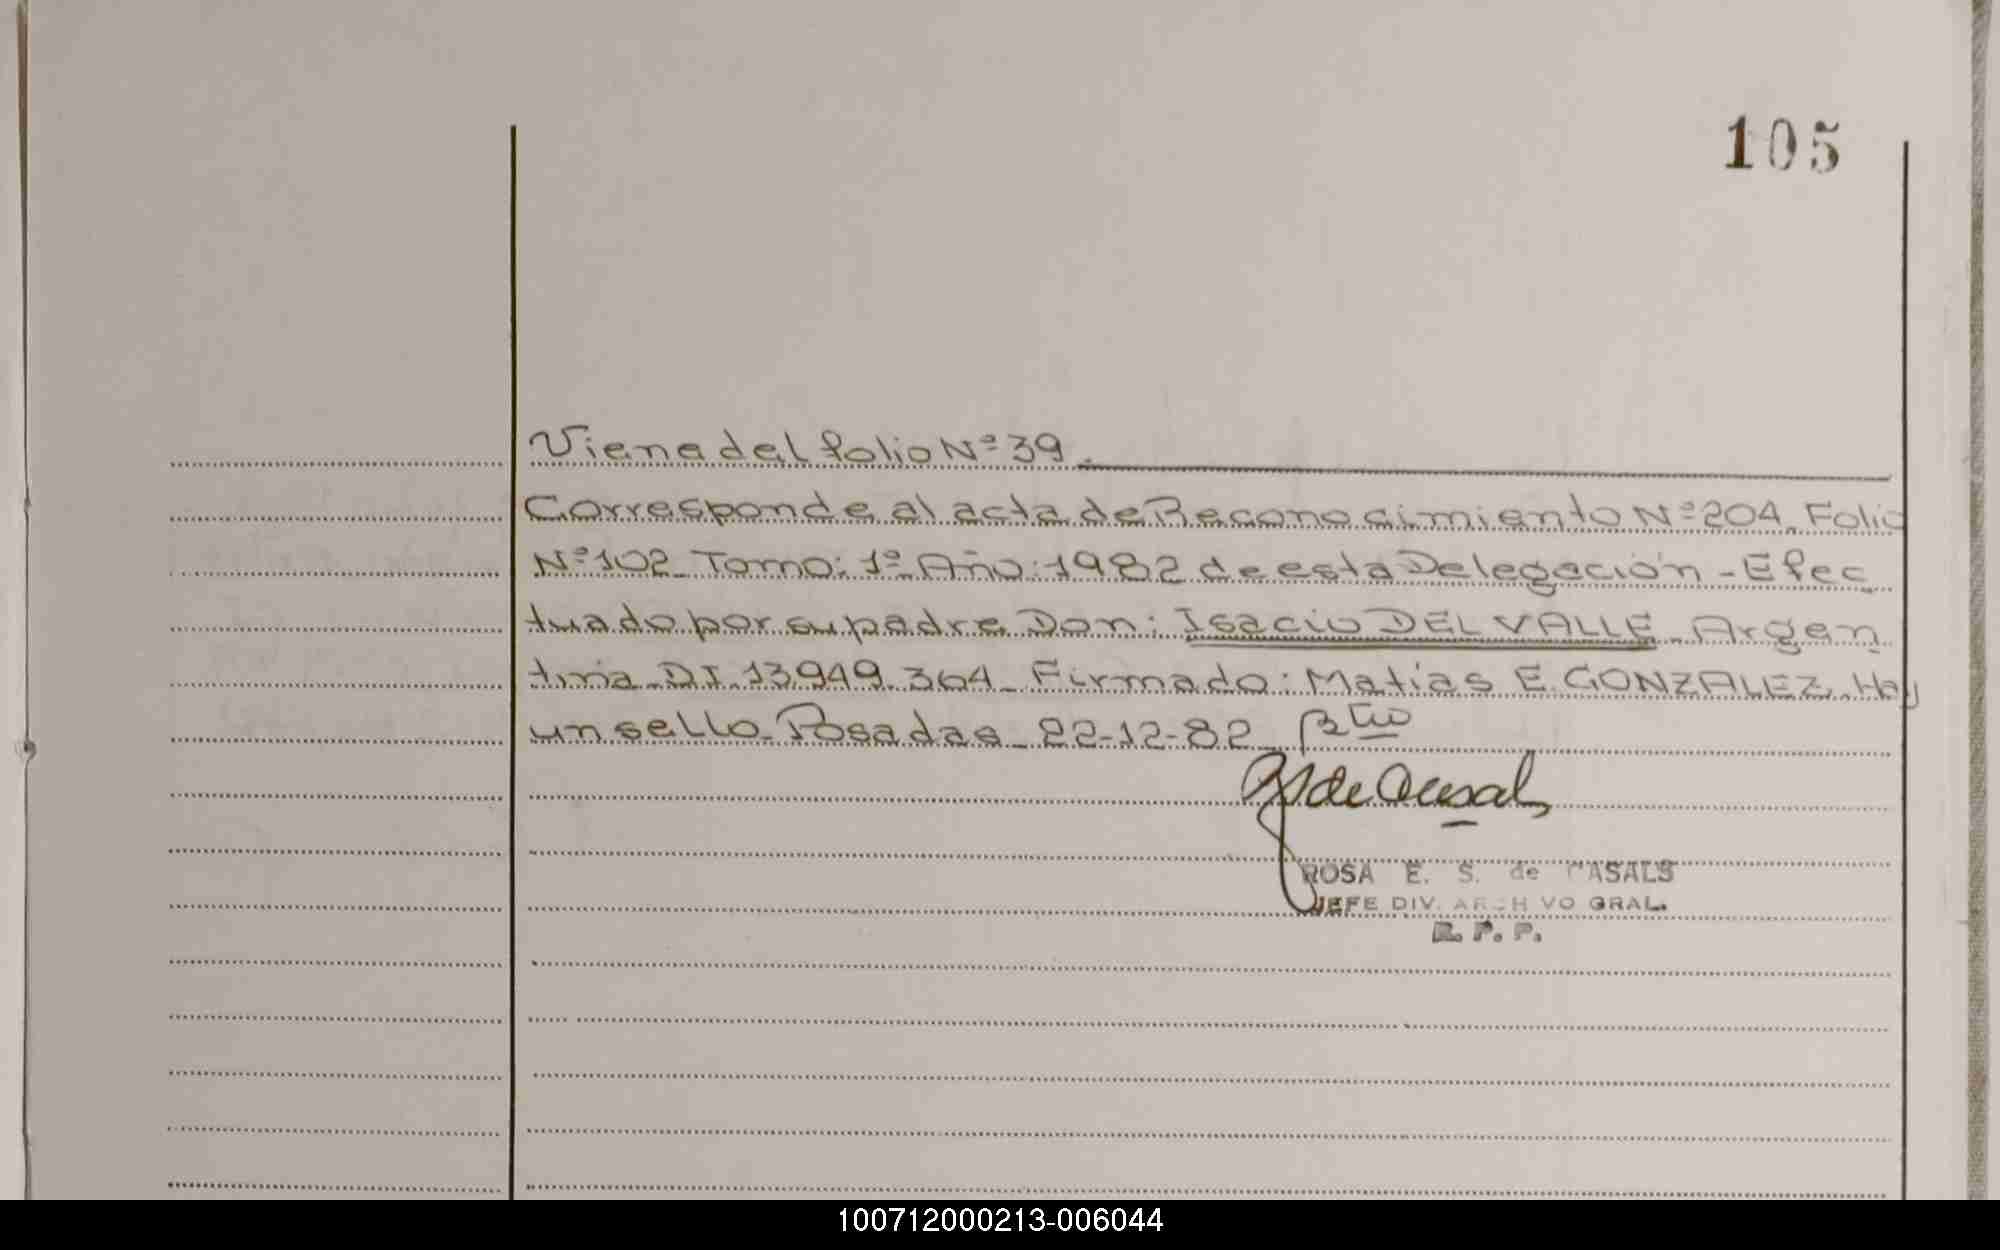 105
Viene del folio Nº 39.
Corresponde al acta de Reconocimiento Nº 204. Folio
Nº 102. Tomo: 1º Año: 1982 de esta Delegación - Efec
tuado por su padre Don: Isacio DEL VALLE. Argen
tina. D.I. 13.949.364. Firmado: Matias E. GONZALEZ. Hay
un sello. Posadas. 22-12-82.
R S de Casals
ROSA E. S. de CASALS
JEFE DIV. ARCHIVO GRAL.
R. P. P.
100712000213-006044